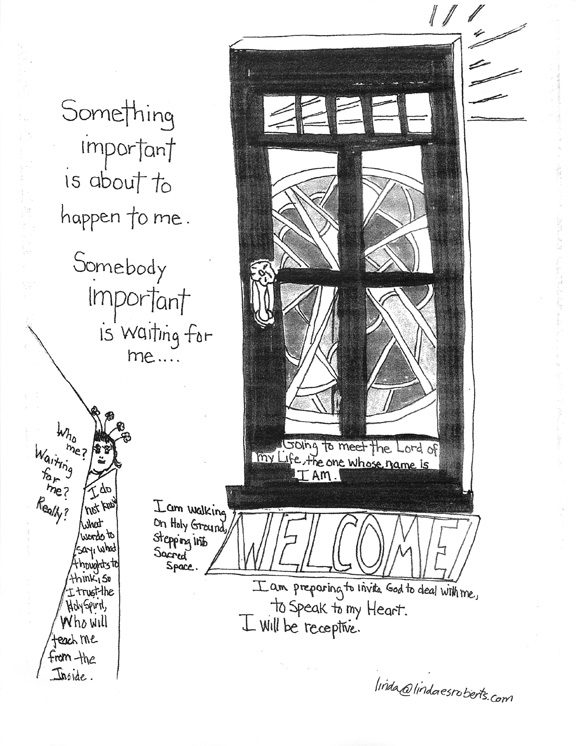 Something
important
is about to
happen to me.
Somebody
Important
is waiting for
me....
Who
me?
Waiting
for
me?
Really?
I do
not know
what
words to
say, what
thoughts to
think, so
I trust the
Holy Spirit,
Who will
teach me
from the
Inside.
Going to meet the Lord of
my Life, the one whose name is
I AM.
I am walking
on Holy Ground,
stepping into
Sacred
Space.
WELCOME!
I am preparing to invite God to deal with me,
to Speak to my Heart.
I will be receptive.
linda@lindaesroberts.com